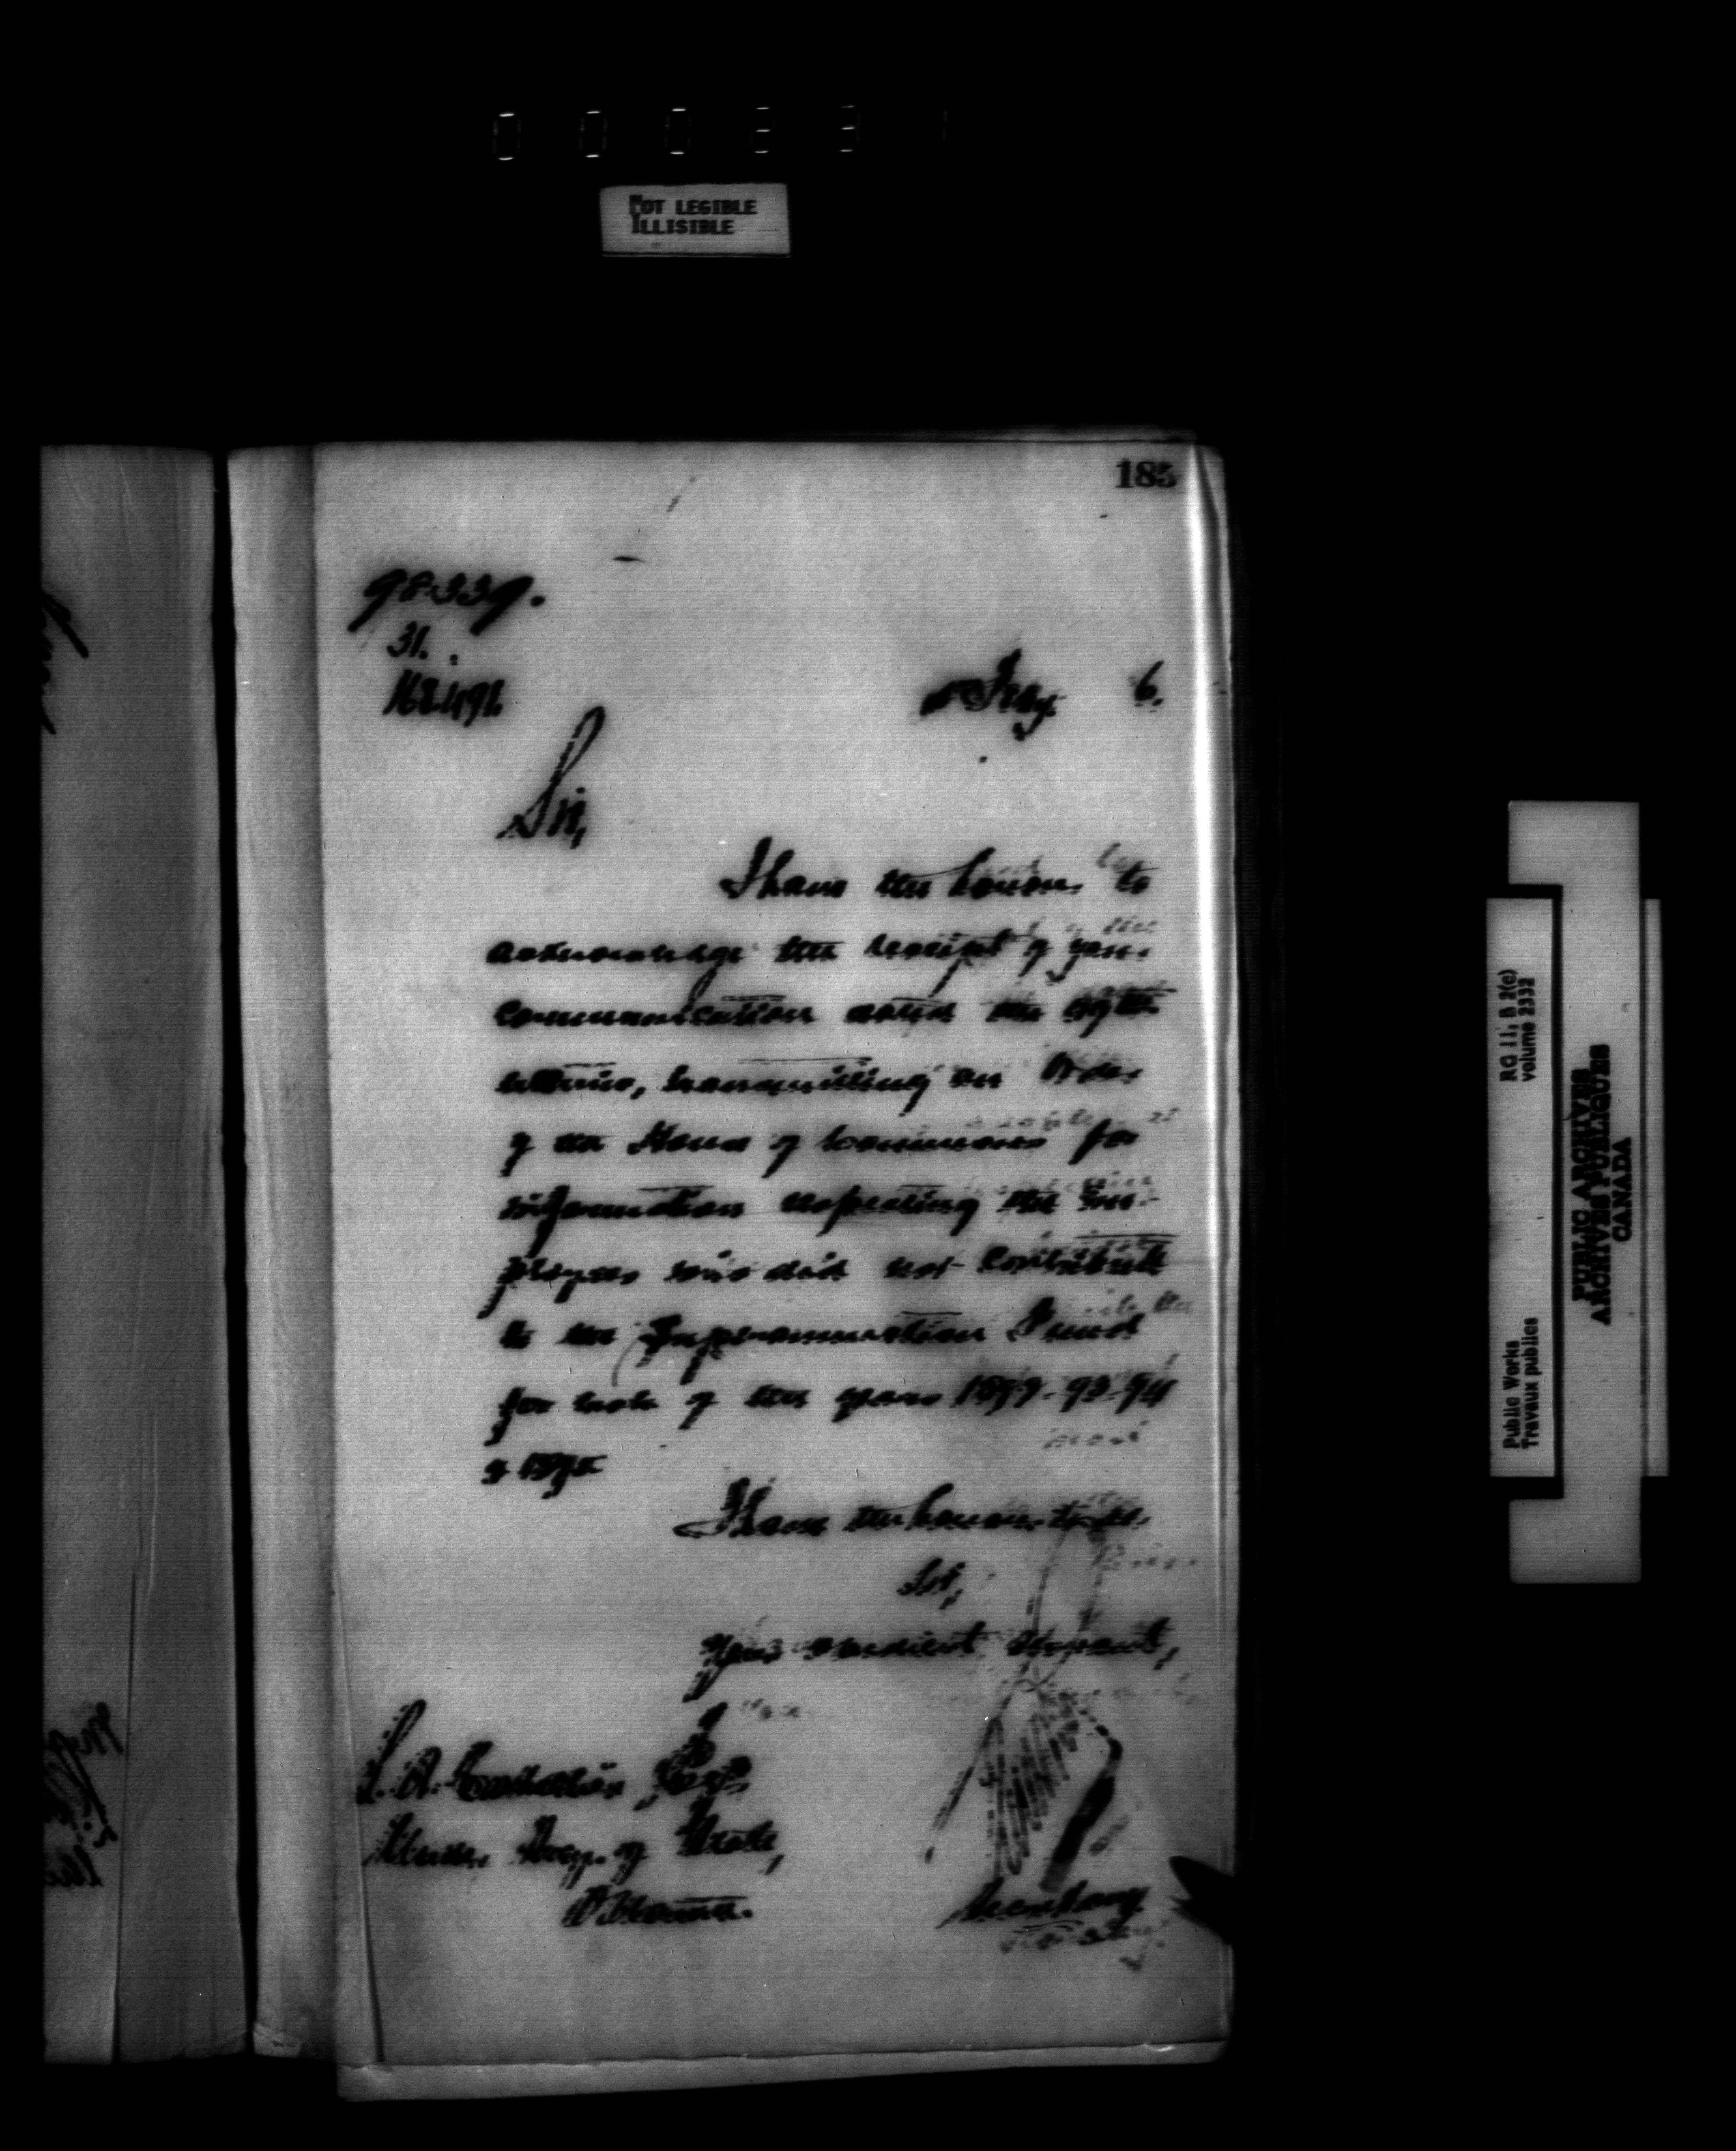 NOT LEGIBLE
ILLISIBLE
185
98339.
31.
6.
Sir,
I have the honour to
acknowledge the receipt of your
communication dated the
ultimo, transmitting an Order
of the House of Commons for
information respecting the em-
ployees who did not contribute
to the Superannuation Fund
for each of the years 93-94
& 1895
I have the honour to be,
Sir,
Your obedient servant,
L. A. Esqr
Under Secy. of State,
Ottawa.
Secretary
RG 11, B 2(c)
volume 2332
Public Works
Travaux publics
PUBLIC ARCHIVES
ARCHIVES PUBLIQUES
CANADA